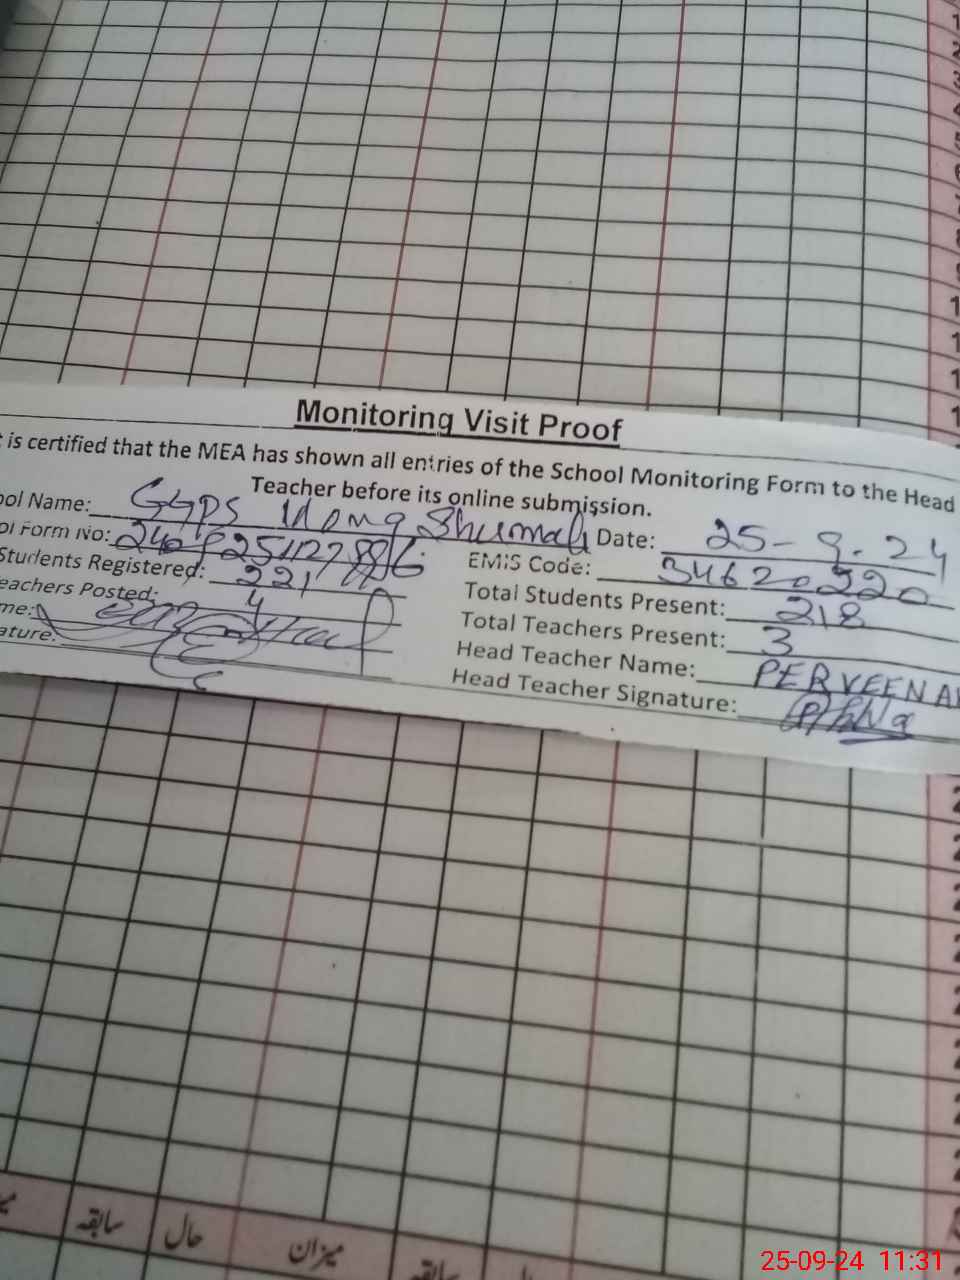 Monitoring Visit Proof
is certified that the MEA has shown all entries of the School Monitoring Form to the Head
Teacher before its online submission.
ool Name: GGPS Mong Shumali Date: 25-9-24
ol Form No: EMIS Code: 34620220
Students Registered: 221 Total Students Present: 218
eachers Posted: 4 Total Teachers Present: 3
me: Head Teacher Name: PERVEEN A
ature: Head Teacher Signature:
سابقہ حال میزان سابقہ
25-09-24 11:31